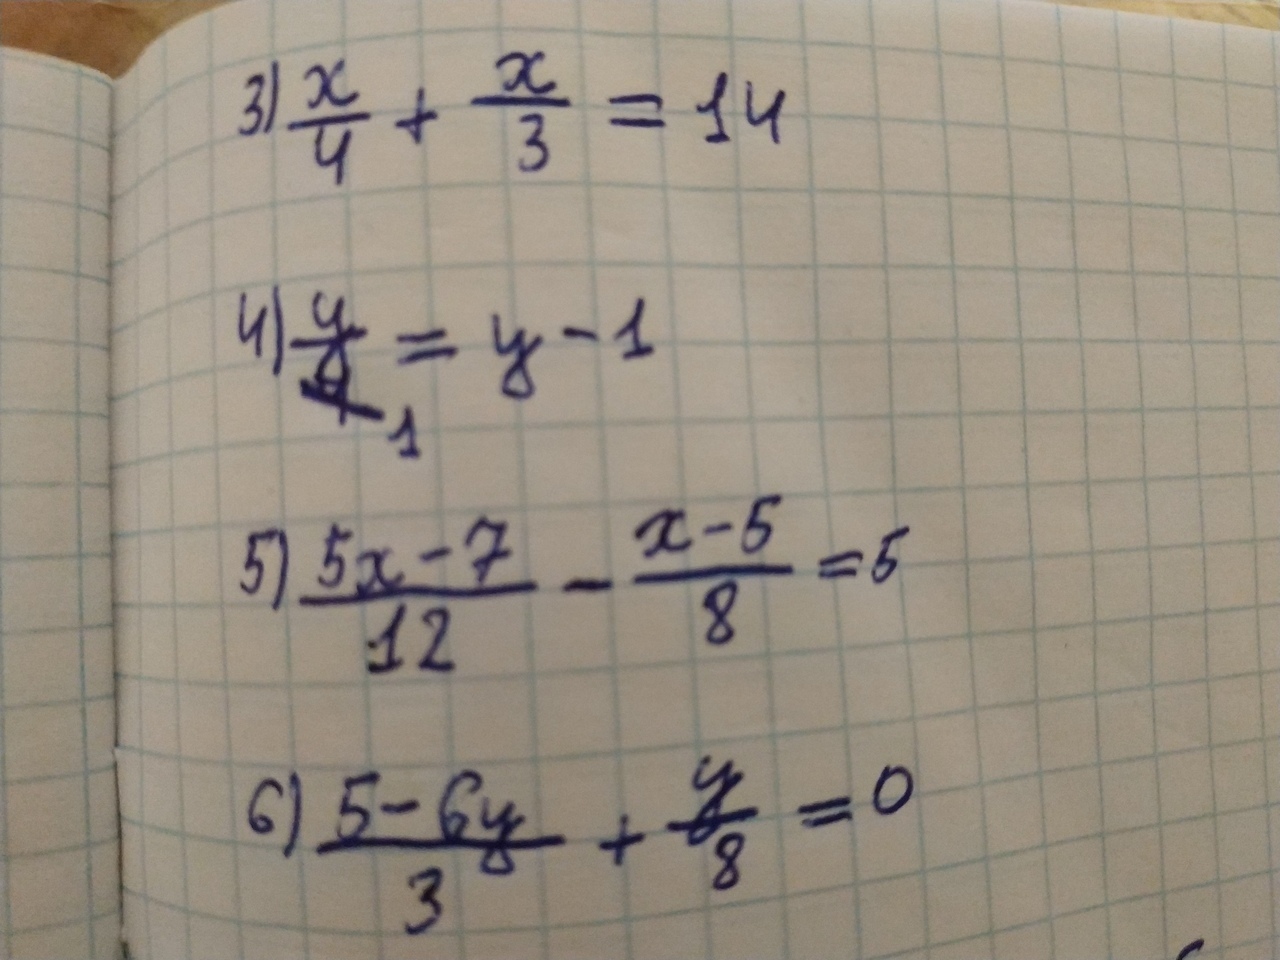 3) x/4 + x/3 = 14
4) y/4 = y - 1
1
5) (5x - 7)/12 - (x - 5)/8 = 5
6) (5 - 6y)/3 + y/8 = 0